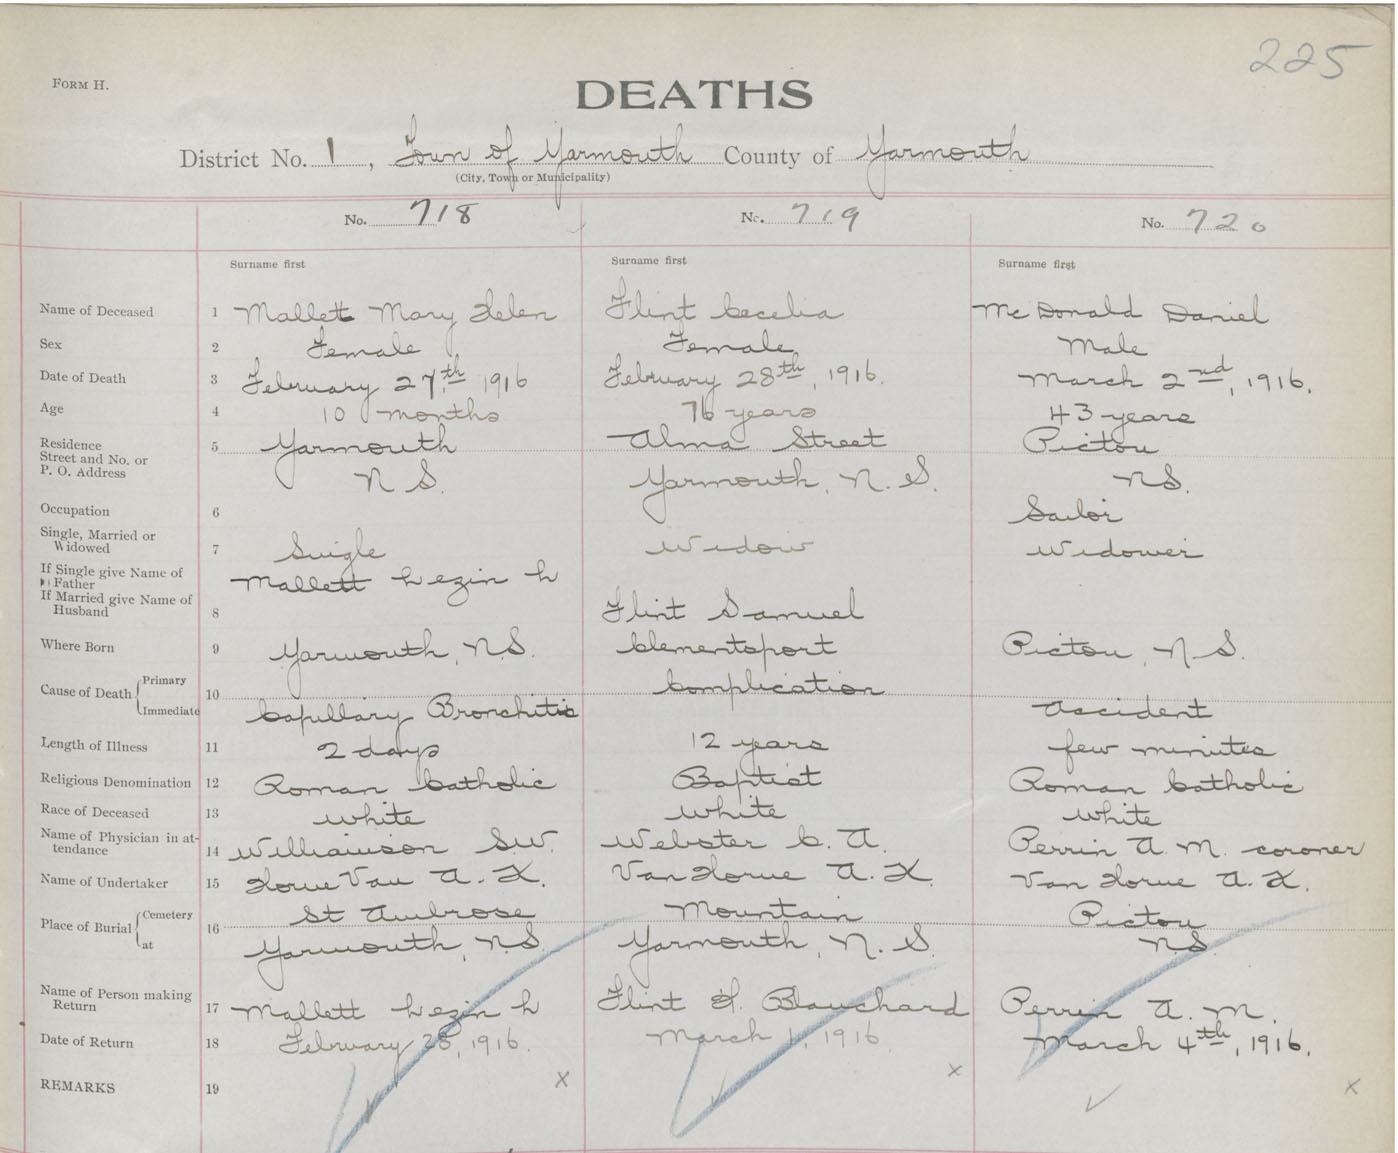 225
FORM H.
DEATHS
District No. 1, Town of Yarmouth County of Yarmouth
(City, Town or Municipality)
No. 718 No. 719 No. 720
Surname first Surname first Surname first
Name of Deceased 1 Mallett Mary Helen Flint Cecelia McDonald Daniel
Sex 2 Female Female Male
Date of Death 3 February 27th 1916 February 28th, 1916. March 2nd, 1916.
Age 4 10 months 76 years 43 years
Residence 5 Yarmouth Alma Street Pictou
Street and No. or
P. O. Address N S. Yarmouth, N. S. NS.
Occupation 6 Sailor
Single, Married or
Widowed 7 Single Widow Widower
If Single give Name of
Father Mallett Lezin L
If Married give Name of
Husband 8 Flint Samuel
Where Born 9 Yarmouth, N.S. Clementsport Pictou, N.S.
Cause of Death Primary 10 Complication
Immediate Capillary Bronchitis Accident
Length of Illness 11 2 days 12 years few minutes
Religious Denomination 12 Roman Catholic Baptist Roman Catholic
Race of Deceased 13 white white white
Name of Physician in at-
tendance 14 Williamson S.W. Webster C. A. Perrin A. M. coroner
Name of Undertaker 15 Horne Van A. K. Van Horne A. K. Van Horne A. K.
Place of Burial Cemetery 16 St Ambrose Mountain Pictou
at Yarmouth, N.S. Yarmouth, N. S. NS
Name of Person making
Return 17 Mallett Lezin L Flint Blanchard Perrin A. M.
Date of Return 18 February 28, 1916. March 1, 1916. March 4th, 1916.
REMARKS 19 x x x